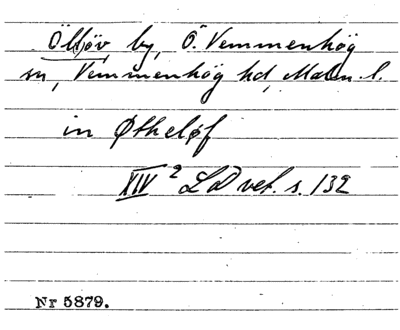 Öllöv, by, Ö. Vemmenhög
sn, Vemmenhög hd, Malm. l.
in Øtheløf
XIV 2 LD vet. s. 132
Nr 5879.